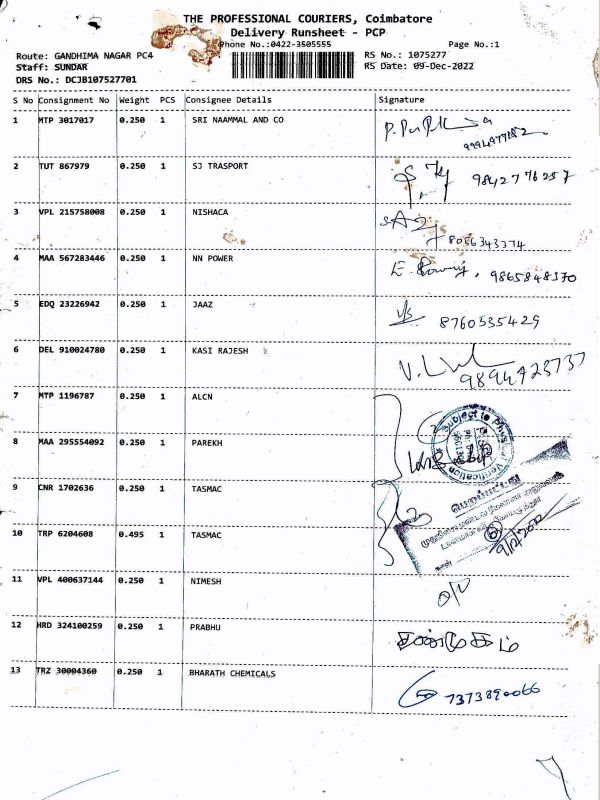 THE PROFESSIONAL COURIERS, Coimbatore
Delivery Runsheet - PCP
Phone No.:0422-3505555
Page No.:1
Route: GANDHIMA NAGAR PC4
RS No.: 1075277
Staff: SUNDAR
RS Date: 09-Dec-2022
DRS No.: DCJB107527701
S No Consignment No Weight PCS Consignee Details Signature
1 MTP 3017017 0.250 1 SRI NAAMMAL AND CO
2 TUT 867979 0.250 1 SJ TRASPORT 9842776257
3 VPL 215758008 0.250 1 NISHACA 8056343374
4 MAA 567283446 0.250 1 NN POWER 9865848370
5 EDQ 23226942 0.250 1 JAAZ 8760535429
6 DEL 910024780 0.250 1 KASI RAJESH 9894923737
7 MTP 1196787 0.250 1 ALCN
8 MAA 295554092 0.250 1 PAREKH
Subject to Physical Verification
9 CNR 1702636 0.250 1 TASMAC
பெறப்பட்டது
10 TRP 6204608 0.495 1 TASMAC
9/12/2022
11 VPL 400637144 0.250 1 NIMESH
12 HRD 324100259 0.250 1 PRABHU சண்முகம்
13 TRZ 30004360 0.250 1 BHARATH CHEMICALS 7373890066